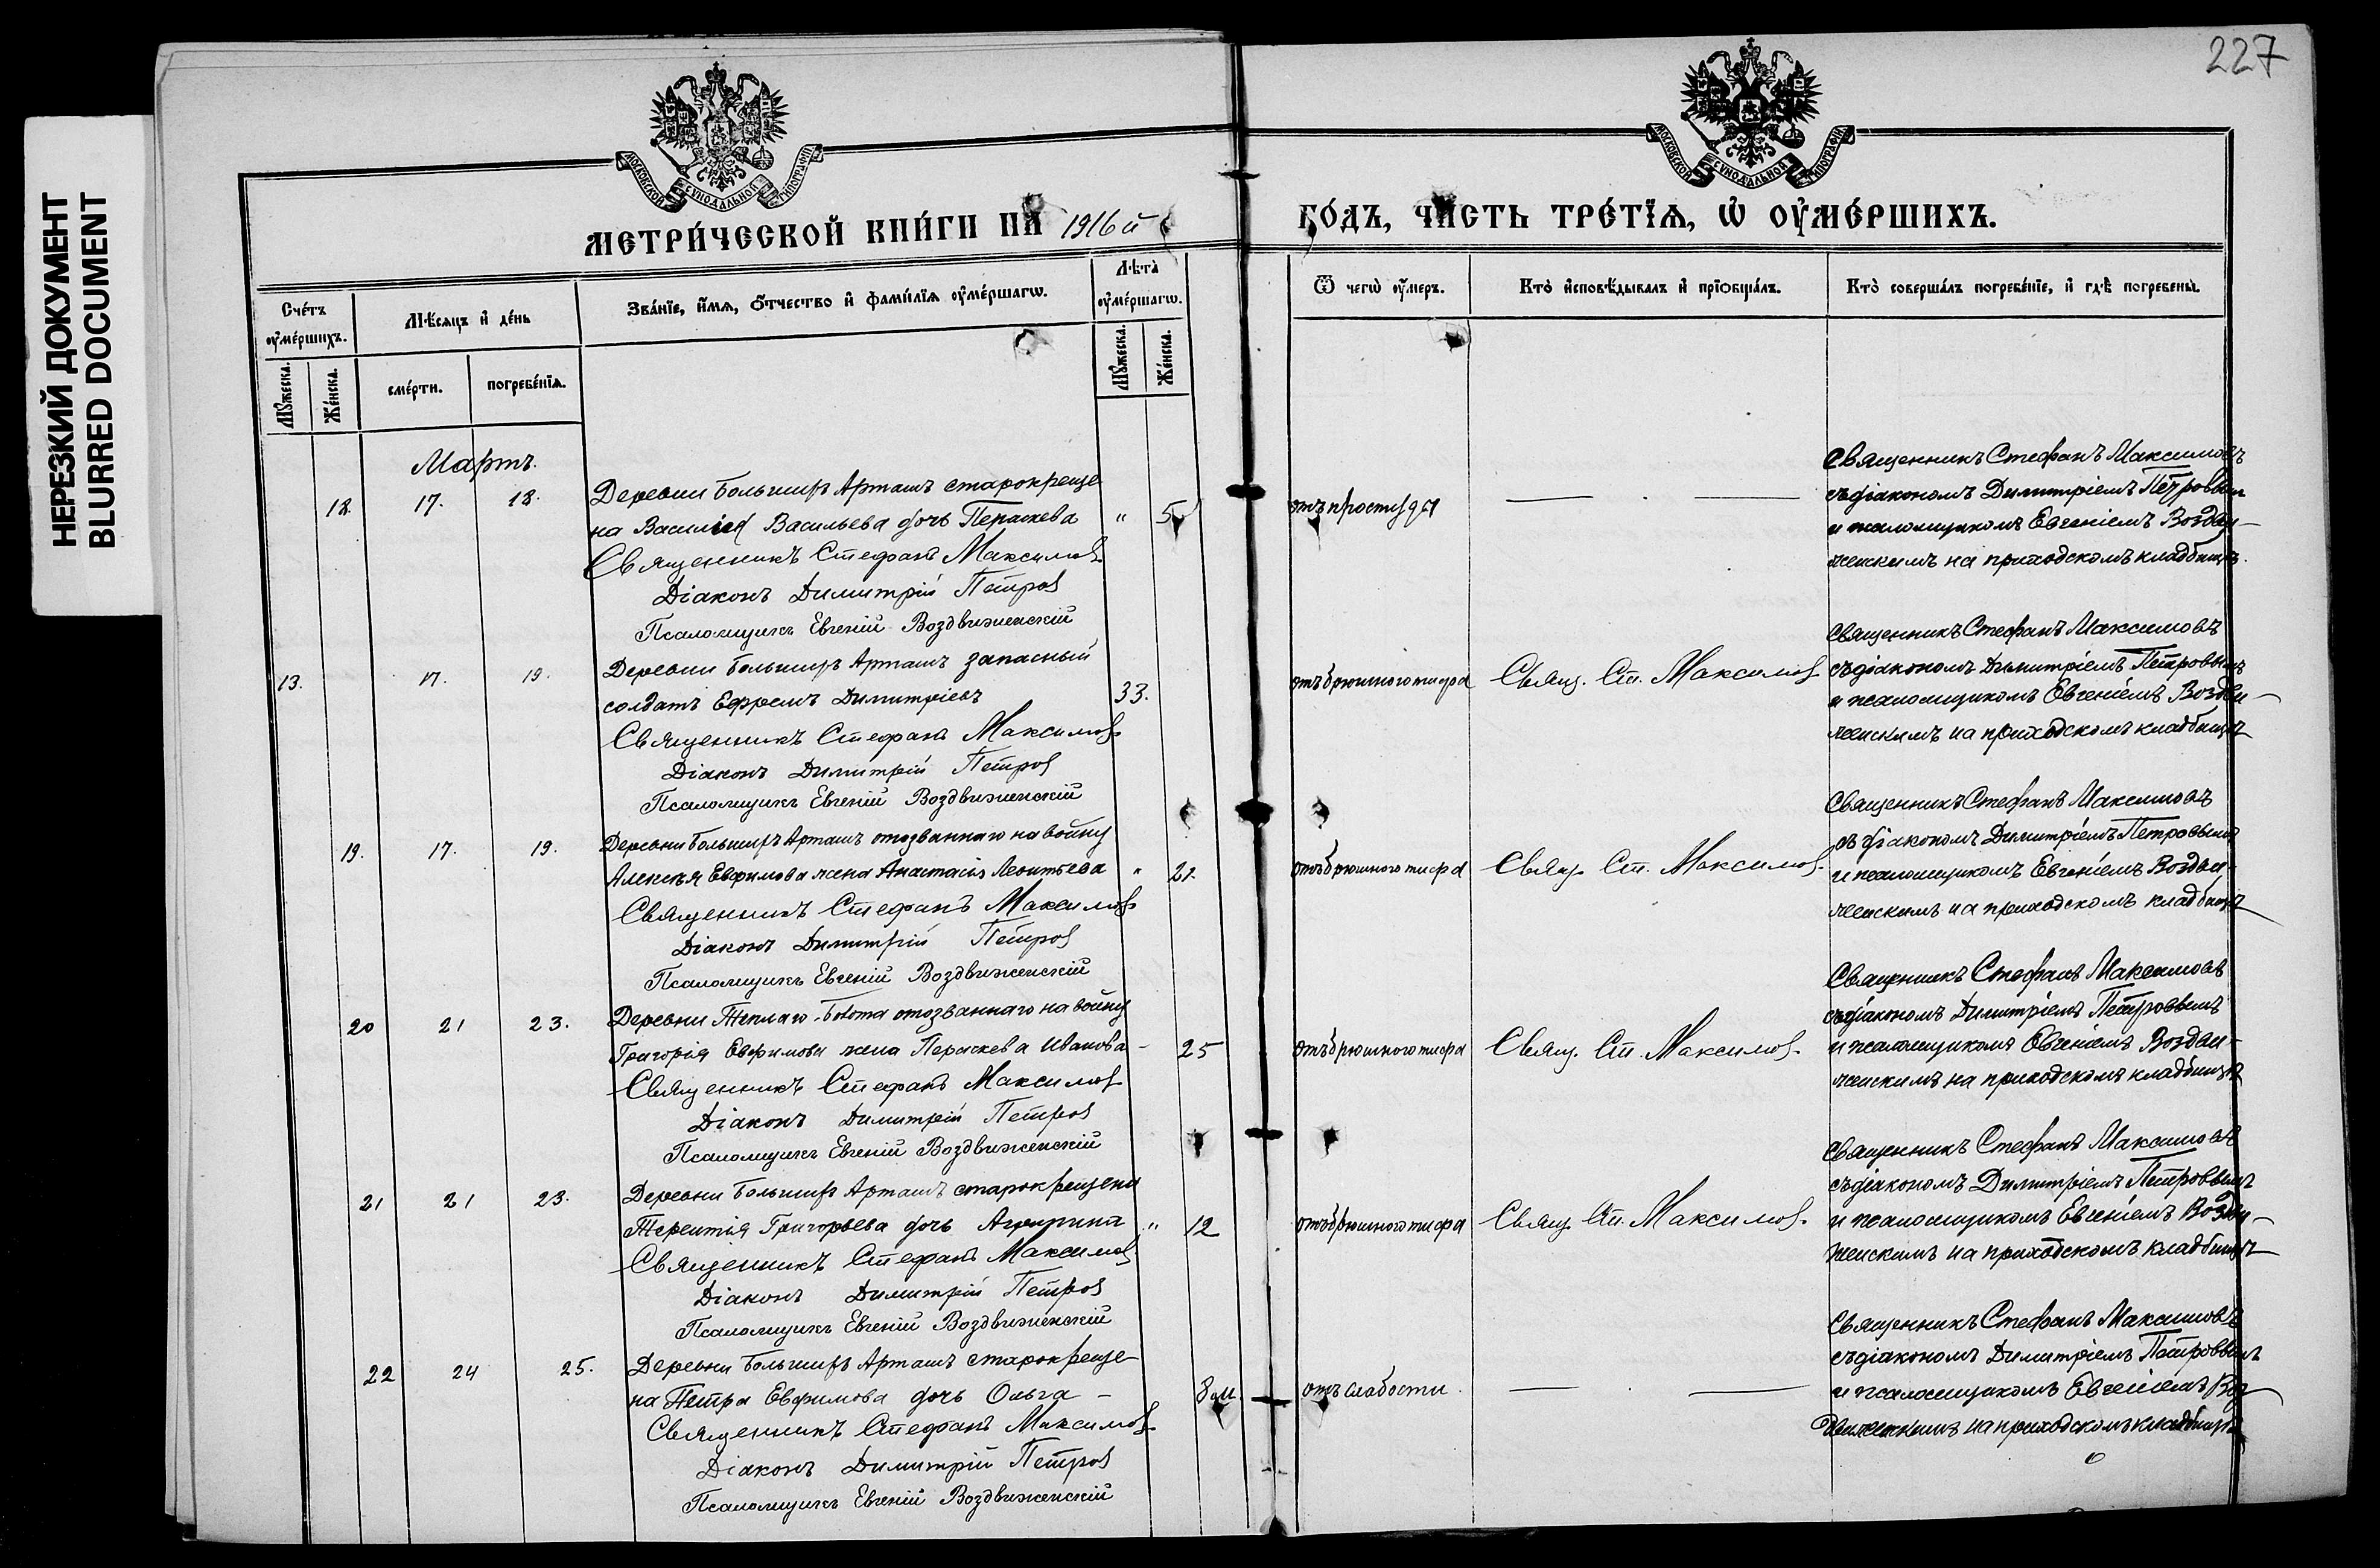 227
НЕРЕЗКИЙ ДОКУМЕНТ
BLURRED DOCUMENT
МОСКОВСКОЙ СУНОДАЛЬНОЙ ТИПОГРАФІИ
МОСКОВСКОЙ СУНОДАЛЬНОЙ ТИПОГРАФІИ
МЕТРИ́ЧЕСКОЙ КНИ́ГИ НА 1916й
ГО́ДЪ, ЧА́СТЬ ТРЕ́ТІѦ, Ѡ҆ ОУ҆МЕ́РШИХЪ.
Сче́тъ оу҆ме́ршихъ.
Мѣ́сяцъ и҆ де́нь
Зва́нїе, и҆́мѧ, ѻ҆́тчество и҆ фами́лїѧ оу҆ме́ршагѡ.
Лѣ́та оу҆ме́ршагѡ.
Ѿ чегѡ̀ оу҆́меръ.
Кто̀ и҆сповѣ́дывалъ и҆ прїѻбща́лъ.
Кто̀ соверша́лъ погребе́нїе, и҆ гдѣ̀ погребены̀.
Мꙋ́жеска.
Же́нска.
сме́рти.
погребе́нїѧ.
Мꙋ́жеска.
Же́нска.
Мартъ.
18. 17. 18. Деревни Большихъ Арташъ старокреще-
на Василія Васильева дочь Параскева " 5
Священникъ Стефанъ Максимов
Діаконъ Димитрій Петров
Псаломщикъ Евгеній Воздвиженскій
отъ простуды
Священникъ Стефанъ Максимовъ
съ діакономъ Димитріемъ Петровымъ
и псаломщикомъ Евгеніемъ Воздви-
женскимъ на приходскомъ кладбищѣ.
13. 17. 19. Деревни Большихъ Арташъ запасный
солдатъ Ефремъ Димитріевъ 33.
Священникъ Стефанъ Максимов
Діаконъ Димитрій Петров
Псаломщикъ Евгеній Воздвиженскій
отъ брюшного тифа
Свящ. Ст. Максимов
Священникъ Стефанъ Максимовъ
съ діакономъ Димитріемъ Петровымъ
и псаломщикомъ Евгеніемъ Воздви-
женскимъ на приходскомъ кладбищѣ
19. 17. 19. Деревни Большихъ Арташъ отозваннаго на войну
Алексѣя Евфимова жена Анастасія Леонтьева " 21.
Священникъ Стефанъ Максимов
Діаконъ Димитрій Петров
Псаломщикъ Евгеній Воздвиженскій
отъ брюшного тифа
Свящ. Ст. Максимов.
Священникъ Стефанъ Максимовъ
съ діакономъ Димитріемъ Петровымъ
и псаломщикомъ Евгеніемъ Воздви-
женскимъ на приходскомъ кладбищѣ
20 21 23. Деревни Теплаго-Болота отозваннаго на войну
Григорія Евфимова жена Параскева Иванова - 25
Священникъ Стефанъ Максимов
Діаконъ Димитрій Петров
Псаломщикъ Евгеній Воздвиженскій
отъ брюшного тифа
Свящ. Ст. Максимов.
Священникъ Стефанъ Максимовъ
съ діакономъ Димитріемъ Петровымъ
и псаломщикомъ Евгеніемъ Воздви-
женскимъ на приходскомъ кладбищѣ
21 21 23. Деревни Большихъ Арташъ старокрещена
Терентія Григорьева дочь Агрипина " 12
Священникъ Стефанъ Максимов
Діаконъ Димитрій Петров
Псаломщикъ Евгеній Воздвиженскій
отъ брюшного тифа
Свящ. Ст. Максимов.
Священникъ Стефанъ Максимовъ
съ діакономъ Димитріемъ Петровымъ
и псаломщикомъ Евгеніемъ Воздви-
женскимъ на приходскомъ кладбищѣ
22 24 25. Деревни Большихъ Арташъ старокреще-
на Петра Евфимова дочь Ольга - 8 м.
Священникъ Стефанъ Максимов
Діаконъ Димитрій Петров
Псаломщикъ Евгеній Воздвиженскій
отъ слабости.
Священникъ Стефанъ Максимовъ
съ діакономъ Димитріемъ Петровымъ
и псаломщикомъ Евгеніемъ Воз-
движенскимъ на приходскомъ кладбищѣ